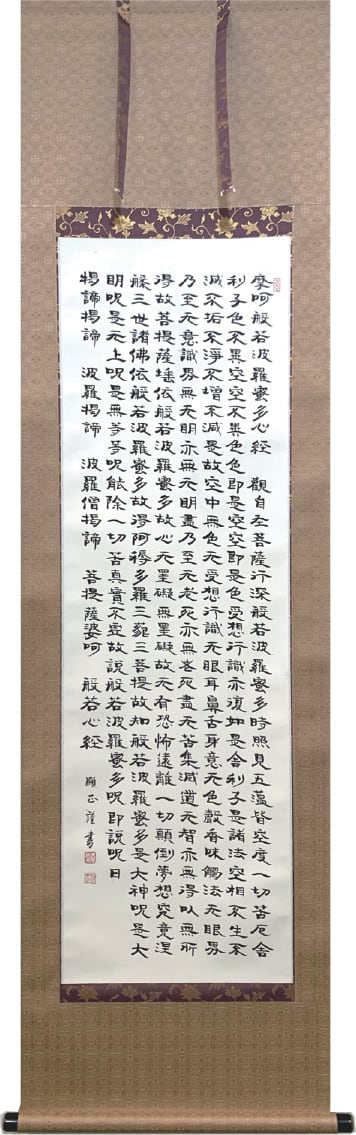 摩呵般若波羅蜜多心經　觀自在菩薩行深般若波羅蜜多時照見五蘊皆空度一切苦厄舍
利子色不異空空不異色色即是空空即是色受想行識亦復如是舍利子是諸法空相不生不
滅不垢不淨不增不減是故空中無色无受想行識无眼耳鼻舌身意无色聲香味觸法无眼界
乃至无意識界無无明亦無无明盡乃至无老死亦無老死盡无苦集滅道无智亦無得以無所
得故菩提薩埵依般若波羅蜜多故心无罣礙無罣礙故无有恐怖遠離一切顛倒夢想究竟涅
槃三世諸佛依般若波羅蜜多故得阿耨多羅三藐三菩提故知般若波羅蜜多是大神呪是大
明呪是无上呪是無等等呪能除一切苦真實不虛故説般若波羅蜜多呪即説呪曰
揭諦揭諦　波羅揭諦　波羅僧揭諦　菩提薩婆呵　般若心経
正謹書